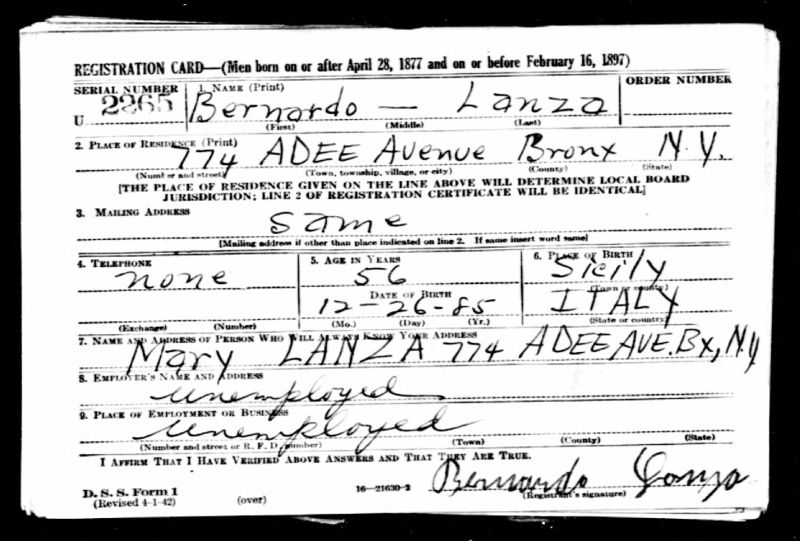 REGISTRATION CARD—(Men born on or after April 28, 1877 and on or before February 16, 1897)
SERIAL NUMBER 1. NAME (Print) ORDER NUMBER
U 2265 Bernardo — Lanza
(First) (Middle) (Last)
2. PLACE OF RESIDENCE (Print)
774 ADEE Avenue Bronx N.Y.
(Number and street) (Town, township, village, or city) (County) (State)
[THE PLACE OF RESIDENCE GIVEN ON THE LINE ABOVE WILL DETERMINE LOCAL BOARD
JURISDICTION; LINE 2 OF REGISTRATION CERTIFICATE WILL BE IDENTICAL]
3. MAILING ADDRESS
Same
[Mailing address if other than place indicated on line 2. If same insert word same]
4. TELEPHONE 5. AGE IN YEARS 6. PLACE OF BIRTH
none 56 Sicily
DATE OF BIRTH (Town or county)
12-26-85 ITALY
(Exchange) (Number) (Mo.) (Day) (Yr.) (State or country)
7. NAME AND ADDRESS OF PERSON WHO WILL ALWAYS KNOW YOUR ADDRESS
Mary LANZA 774 ADEE AVE. Bx, N.Y
8. EMPLOYER'S NAME AND ADDRESS
unemployed
9. PLACE OF EMPLOYMENT OR BUSINESS
unemployed
(Number and street or R. F. D. number) (Town) (County) (State)
I AFFIRM THAT I HAVE VERIFIED ABOVE ANSWERS AND THAT THEY ARE TRUE.
Bernardo Lanza
D. S. S. Form 1 16—21630-2 (Registrant's signature)
(Revised 4-1-42) (over)